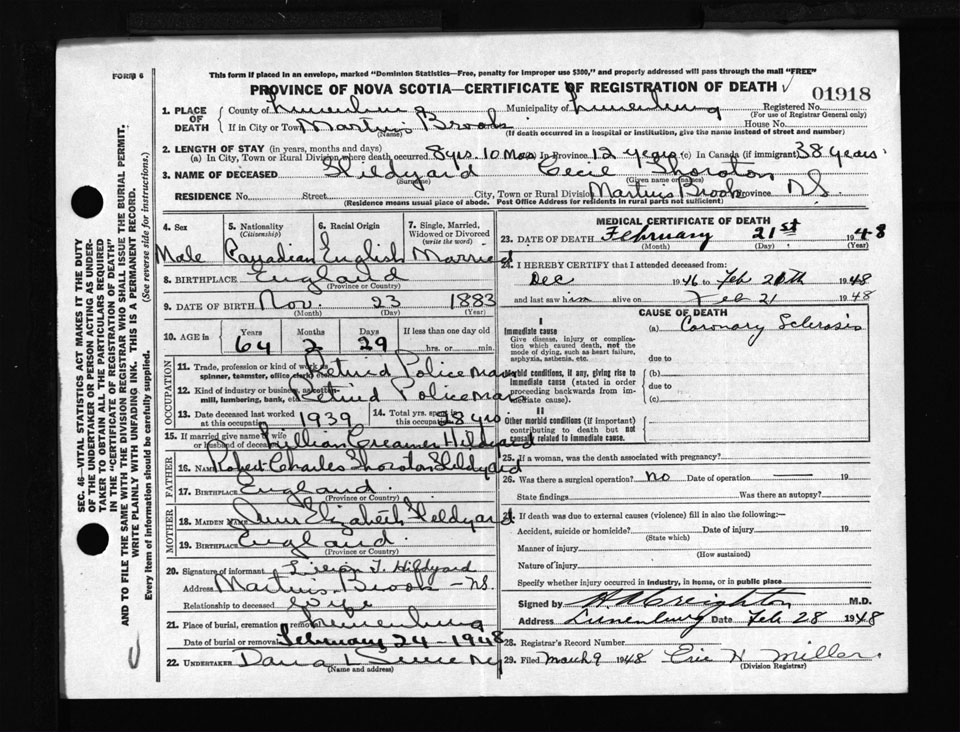 FORM 6
This form if placed in an envelope, marked "Dominion Statistics—Free, penalty for improper use $300," and properly addressed will pass through the mail "FREE"
PROVINCE OF NOVA SCOTIA—CERTIFICATE OF REGISTRATION OF DEATH
01918
1. PLACE OF DEATH
County of Lunenburg Municipality of Lunenburg Registered No.
(For use of Registrar General only)
If in City or Town Martins Brook House No.
(Name) (If death occurred in a hospital or institution, give the name instead of street and number)
2. LENGTH OF STAY (in years, months and days)
(a) In City, Town or Rural Division where death occurred 8 yrs. 10 Mos (b) In Province 12 years (c) In Canada (if immigrant) 38 years
3. NAME OF DECEASED Hildyard Cecil Thoroton
(Surname) (Given name or names)
RESIDENCE No. Street City, Town or Rural Division Martins Brook Province N.S
(Residence means usual place of abode. Post Office Address for residents in rural parts not sufficient)
4. Sex
5. Nationality (Citizenship)
6. Racial Origin
7. Single, Married, Widowed or Divorced (write the word)
Male Canadian English Married
8. BIRTHPLACE England
(Province or Country)
9. DATE OF BIRTH Nov. 23 1883
(Month) (Day) (Year)
10. AGE in
Years Months Days If less than one day old
64 2 29 hrs. or min.
OCCUPATION
11. Trade, profession or kind of work as spinner, teamster, office clerk, etc. Retired Policeman
12. Kind of industry or business, as cotton mill, lumbering, bank, etc. Retired Policeman
13. Date deceased last worked at this occupation 1939
14. Total yrs. spent this occupation 28 yrs
15. If married give name of wife or husband of deceased Lillian Creamer Hildyard
FATHER
16. Name Robert Charles Thoroton Hildyard
17. Birthplace England
(Province or Country)
MOTHER
18. Maiden Name Ann Elizabeth Hildyard
19. Birthplace England
(Province or Country)
20. Signature of informant Hildyard
Address Martins Brook - N.S
Relationship to deceased Wife
21. Place of burial, cremation or removal Lunenburg
Date of burial or removal February 24 - 1948
22. UNDERTAKER
(Name and address)
MEDICAL CERTIFICATE OF DEATH
23. DATE OF DEATH February 21st 1948
(Month) (Day) (Year)
24. I HEREBY CERTIFY that I attended deceased from:
Dec 1946 to Feb 20th 1948
and last saw him alive on Feb 21 1948
CAUSE OF DEATH
I
Immediate cause
Give disease, injury or complication which caused death, not the mode of dying, such as heart failure, asphyxia, asthenia, etc.
(a) Coronary Sclerosis
due to
Morbid conditions, if any, giving rise to immediate cause (stated in order proceeding backwards from immediate cause).
(b)
due to
(c)
II
Other morbid conditions (if important) contributing to death but not causally related to immediate cause.
25. If a woman, was the death associated with pregnancy?
26. Was there a surgical operation? no Date of operation 19
State findings Was there an autopsy?
27. If death was due to external causes (violence) fill in also the following:—
Accident, suicide or homicide? Date of injury 19
(State which)
Manner of injury
(How sustained)
Nature of injury
Specify whether injury occurred in industry, in home, or in public place
Signed by Creighton M.D.
Address Lunenburg Date Feb 28 1948
28. Registrar's Record Number
29. Filed March 9 1948 Eric H Miller
(Division Registrar)
SEC. 46—VITAL STATISTICS ACT MAKES IT THE DUTY
OF THE UNDERTAKER OR PERSON ACTING AS UNDERTAKER
TO OBTAIN ALL THE PARTICULARS REQUIRED
IN THE "CERTIFICATE OF REGISTRATION OF DEATH"
AND TO FILE THE SAME WITH THE DIVISION REGISTRAR WHO SHALL ISSUE THE BURIAL PERMIT.
WRITE PLAINLY WITH UNFADING INK. THIS IS A PERMANENT RECORD.
Every item of information should be carefully supplied. (See reverse side for instructions.)